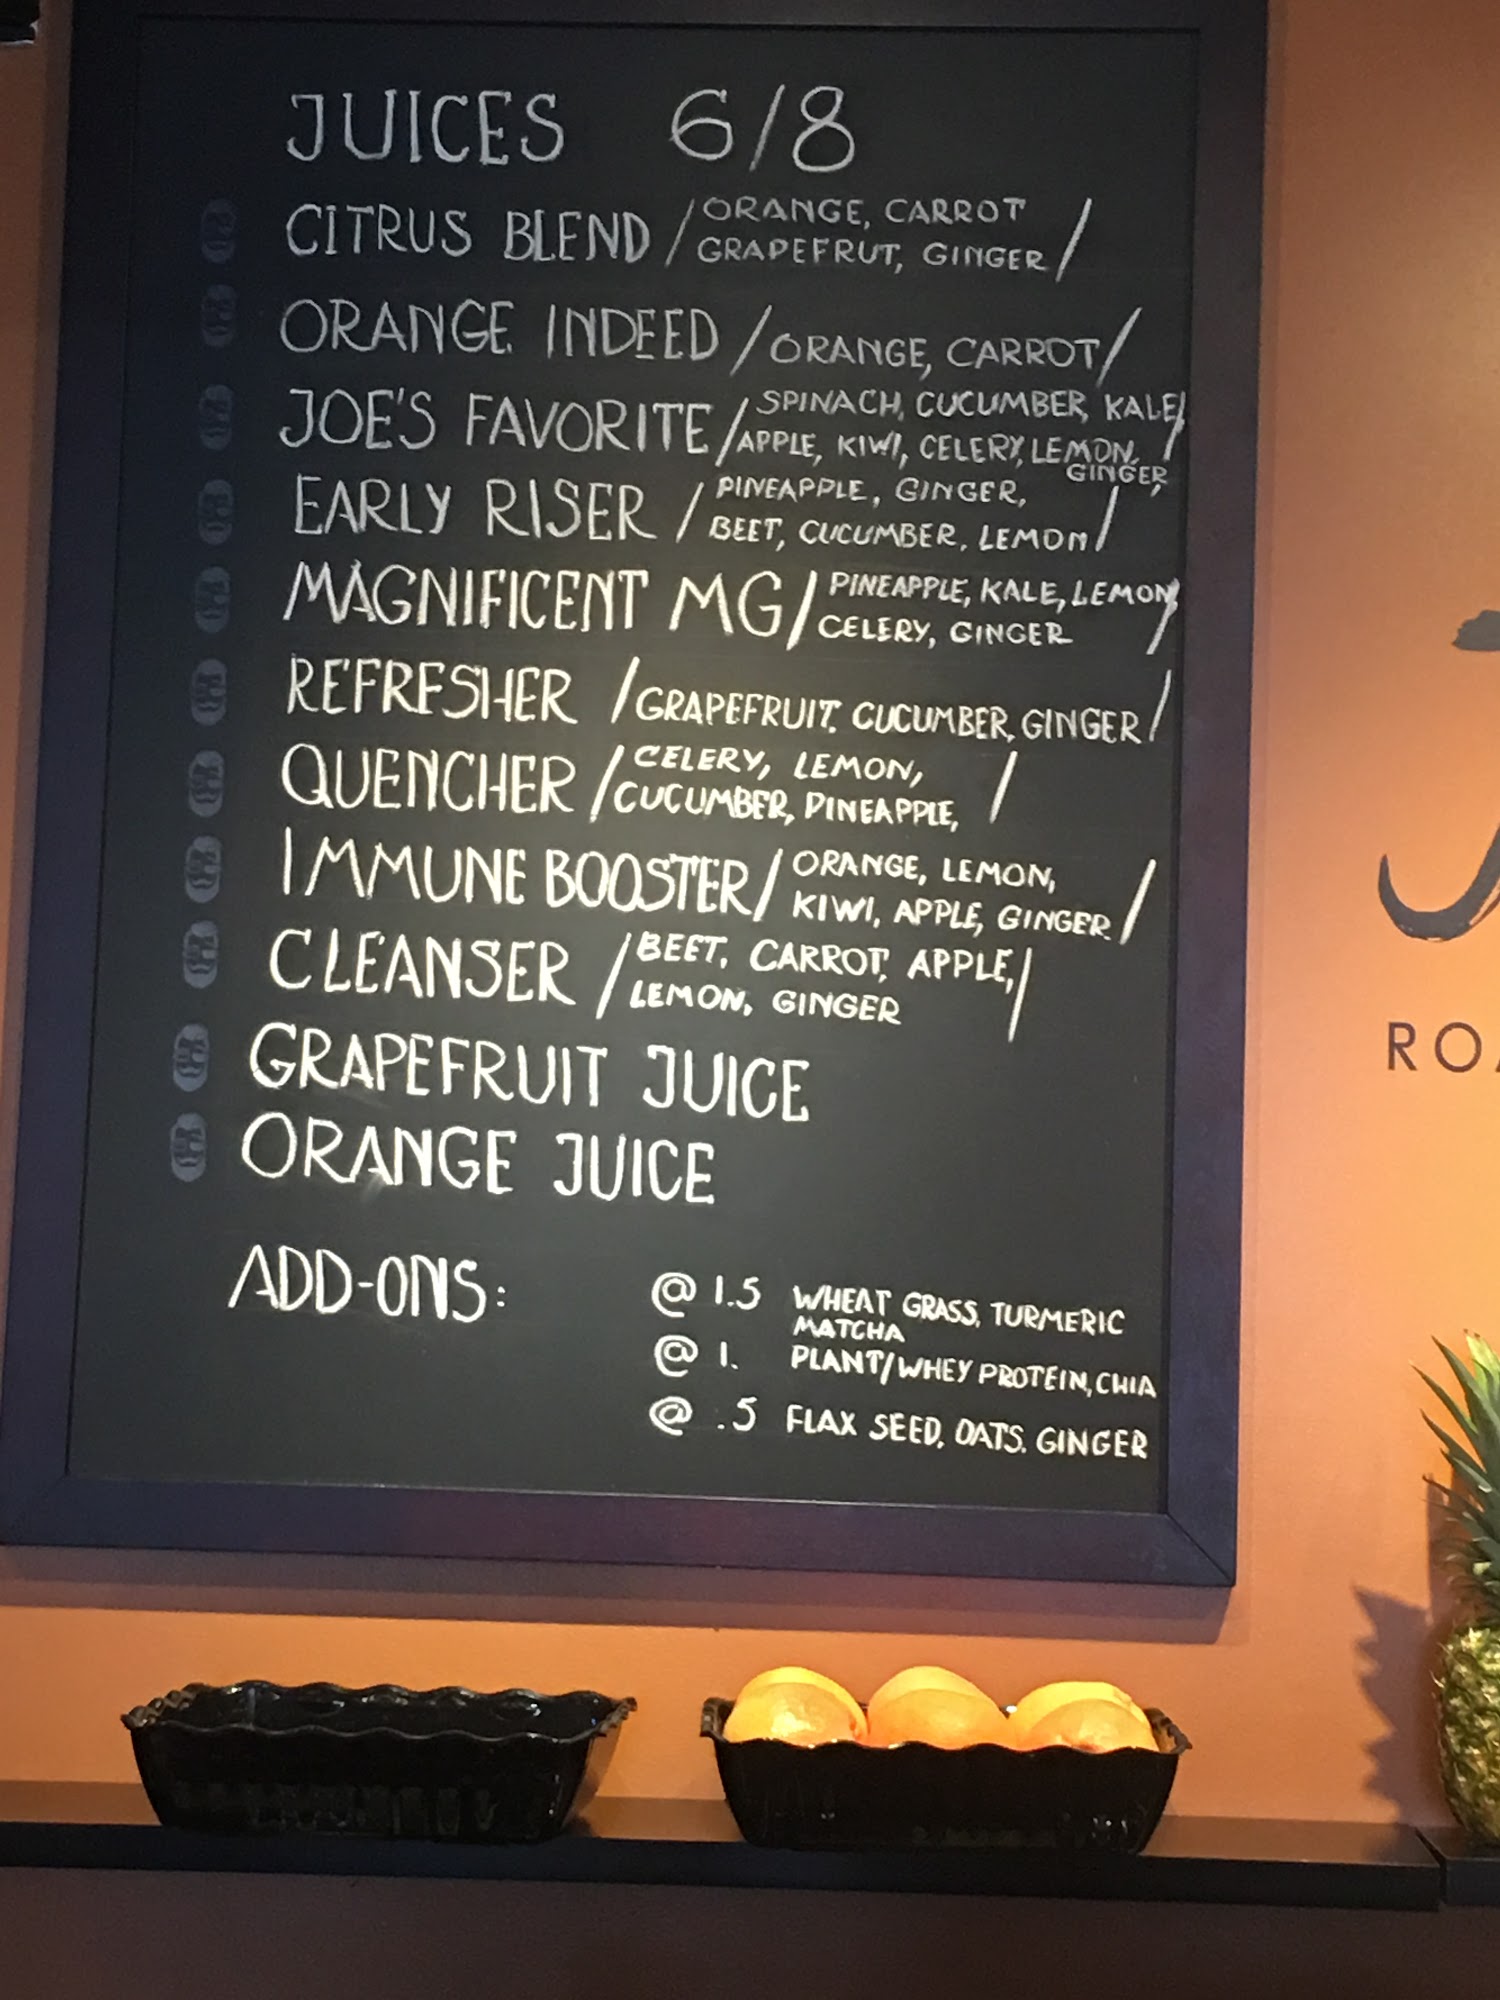 JUICES 6/8
CITRUS BLEND / ORANGE, CARROT
GRAPEFRUT, GINGER /
ORANGE INDEED / ORANGE, CARROT /
JOE'S FAVORITE / SPINACH, CUCUMBER, KALE,
APPLE, KIWI, CELERY, LEMON, /
GINGER,
EARLY RISER / PINEAPPLE, GINGER,
BEET, CUCUMBER, LEMON /
MAGNIFICENT MG / PINEAPPLE, KALE, LEMON,
CELERY, GINGER /
REFRESHER / GRAPEFRUIT, CUCUMBER, GINGER /
QUENCHER / CELERY, LEMON,
CUCUMBER, PINEAPPLE, /
IMMUNE BOOSTER / ORANGE, LEMON,
KIWI, APPLE, GINGER /
CLEANSER / BEET, CARROT, APPLE, /
LEMON, GINGER
GRAPEFRUIT JUICE
ORANGE JUICE
ADD-ONS: @ 1.5 WHEAT GRASS, TURMERIC
MATCHA
@ 1. PLANT/WHEY PROTEIN, CHIA
@ .5 FLAX SEED, OATS. GINGER
J
ROA